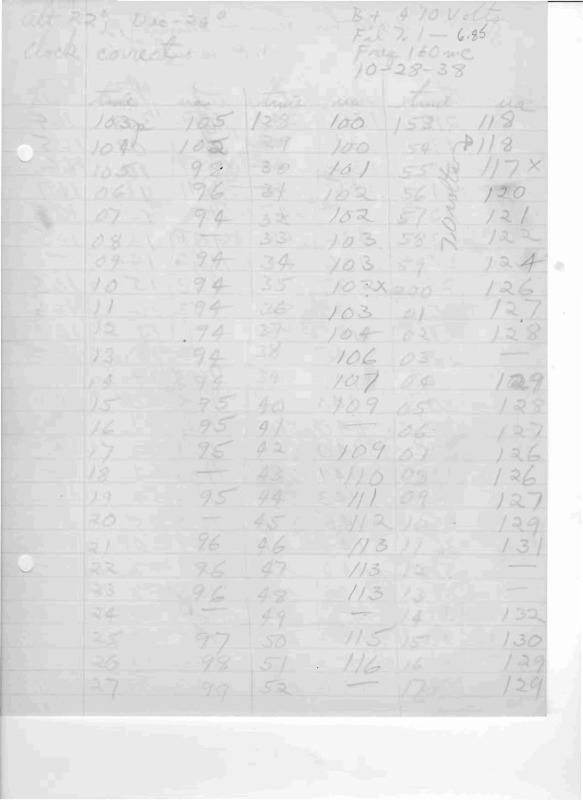 alt 22° Dec -26° B+ 470 Volts
Clock correct Fil 7.1 — 6.85
Freq 160 mc
10-28-38
time ua time ua time ua
103p 105 128 100 153 118
104 102 29 100 54 118
105 98 30 101 55 117 x
06 96 31 102 56 120
07 94 32 102 57 121
08 — 33 103 58 122
09 94 34 103 59 124
10 94 35 103x 200 126
11 94 36 103 01 127
12 94 37 104 02 128
13 94 38 106 03 —
14 94 39 107 04 129
15 95 40 109 05 128
16 95 41 — 06 127
17 95 42 109 07 126
18 — 43 110 08 126
19 95 44 111 09 127
20 — 45 112 10 129
21 96 46 113 11 131
22 96 47 113 12 —
23 96 48 113 13 —
24 — 49 — 14 132
25 97 50 115 15 130
26 98 51 116 16 129
27 99 52 — 17 129